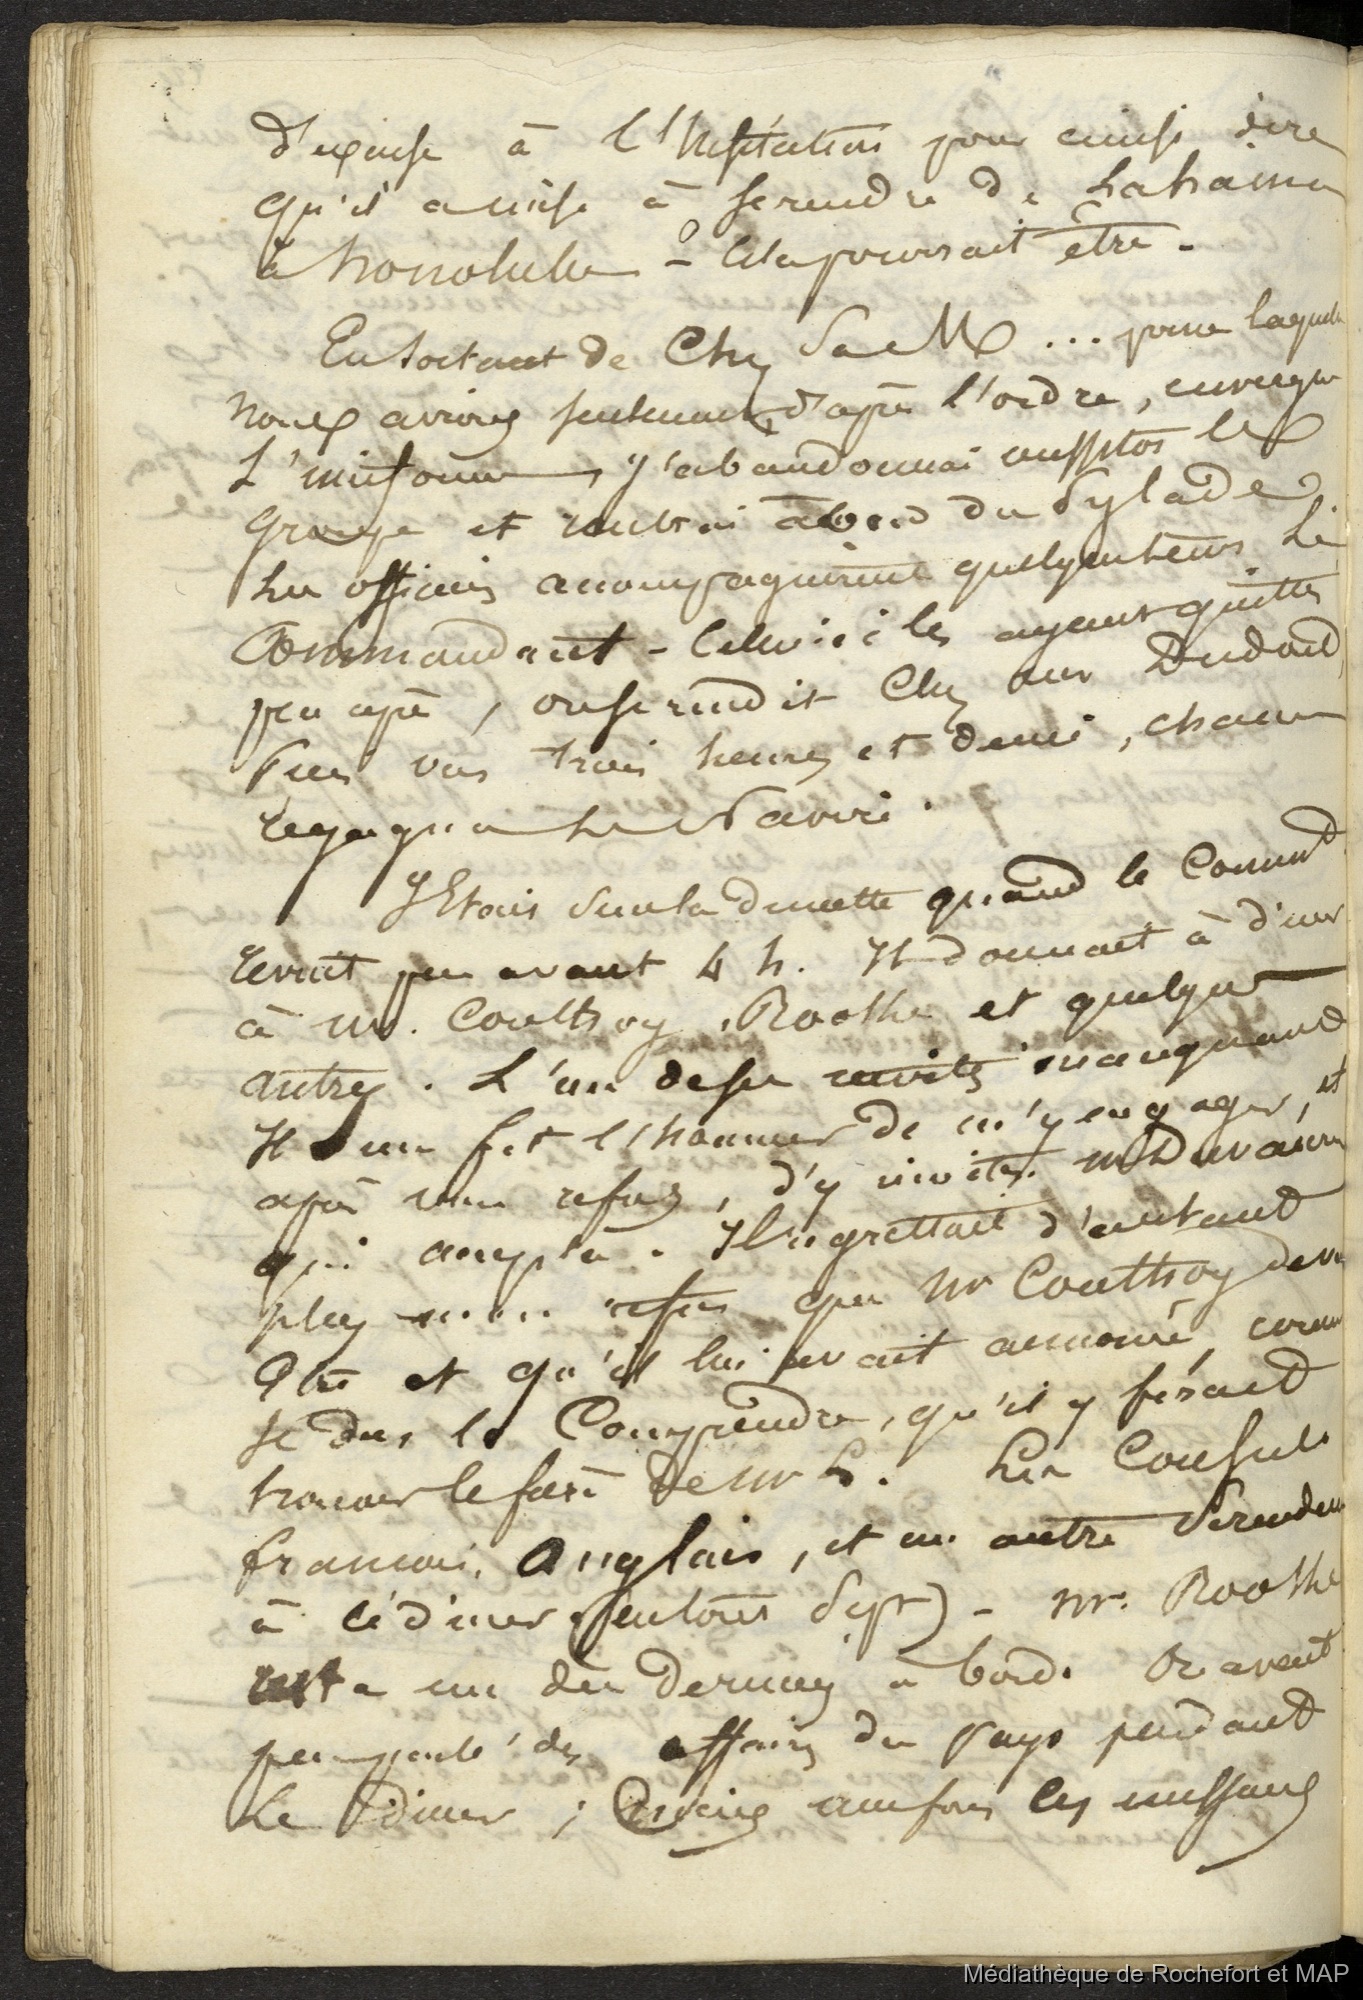 d'excuse à l'hésitation pour ainsi dire
qu'il a mise à se rendre de Lahaina
à honolulu - Cela pourrait être -
En sortant de Chez Sa M ... pour laquelle
nous avions seulement, d'après l'ordre,
L'uniforme, j'abandonnai aussitôt le
groupe et rentrai à bord du Pylade
Les officiers accompagnèrent quelque tems Le
Commandant - Celui-ci les ayant quittés
peu après, on se rendit Chez
Puis vers trois heures et demi, chacun
regagna Le Navire.
J'Etais Sur la dunette quand le Commd
revint peu avant 4 h. Il donnait à diner
à mr. Coulthoy, Roothe et quelques
autres. L'un de ses invités manquant
Il me fit l'honneur de m'y engager, et
après mon refus, d'y inviter mr
qui accepta. Il regrettait d'autant
plus mon refus que Mr Coulthoy devait
être et qu'il lui avait annoncé, comme
Je dus le Comprendre, qu'il y ferait
trouver le frère de Mr L. Les Consuls
français, anglais, et un autre Se rendirent
à cé diner (en tout Sept) - Mr. Roothe
resta un des derniers à bord. On avait
peu parlé des affaires du Pays pendant
Le diner ;